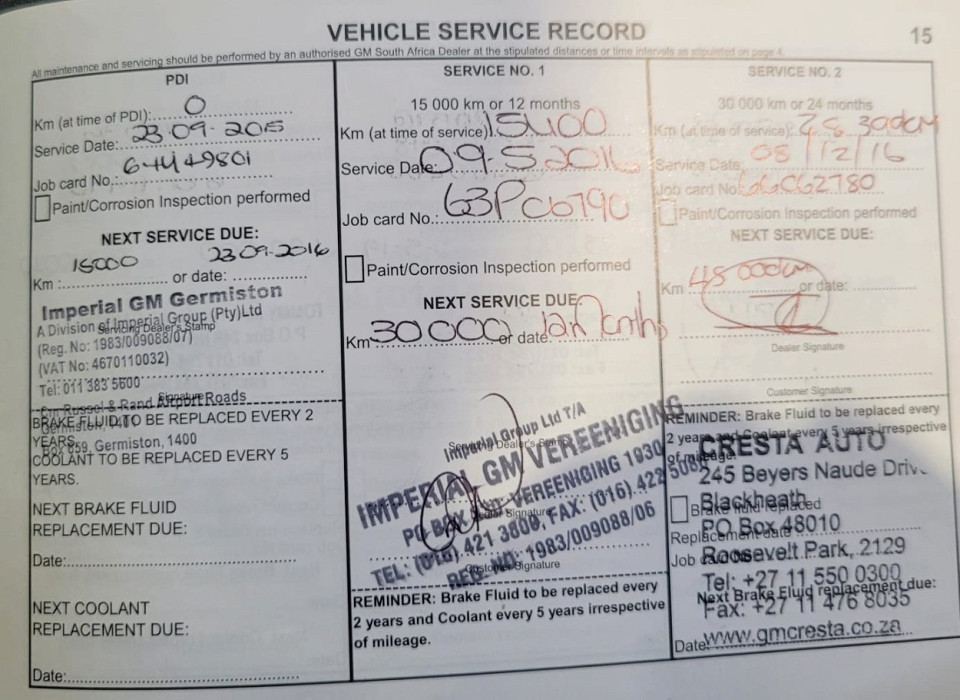 VEHICLE SERVICE RECORD
15
All maintenance and servicing should be performed by an authorised GM South Africa Dealer at the stipulated distances or time intervals as stipulated on page 4.
PDI
Km (at time of PDI): 0
Service Date: 23 09 - 2015
Job card No.:
Paint/Corrosion Inspection performed
NEXT SERVICE DUE:
15000 23 09-2016
Km : or date:
Imperial GM Germiston
A Division of Imperial Group (Pty)Ltd
Servicing Dealer's Stamp
(Reg. No: 1983/009088/07)
(VAT No: 4670110032)
Tel: 011 383 5600
Signature
Cnr Russel & Rand Airport Roads
BRAKE FLUID TO BE REPLACED EVERY 2
Germiston, 1401
YEARS.
Box 859, Germiston, 1400
COOLANT TO BE REPLACED EVERY 5
YEARS.
NEXT BRAKE FLUID
REPLACEMENT DUE:
Date:
NEXT COOLANT
REPLACEMENT DUE:
Date:
SERVICE NO. 1
15 000 km or 12 months
Km (at time of service)
Service Date 09-5 2016
Job card No.: 63PC6790
Paint/Corrosion Inspection performed
NEXT SERVICE DUE
Km 30 000 or date:
Imperial Group Ltd T/A
Servicing Dealer's Stamp
IMPERIAL GM VEREENIGING
PO BOX VEREENIGING 1930
Dealer Signature
TEL: (016) 421 3800, FAX: (016) 422 5082
REG. NO: 1983/009088/06
Customer Signature
REMINDER: Brake Fluid to be replaced every
2 years and Coolant every 5 years irrespective
of mileage.
SERVICE NO. 2
30 000 km or 24 months
Km (at time of service):
Service Date: 08/12/16
Job card No: 66C62780
Paint/Corrosion Inspection performed
NEXT SERVICE DUE:
Km 45 000km or date:
Dealer Signature
Customer Signature
REMINDER: Brake Fluid to be replaced every
2 years and Coolant every 5 years irrespective
of mileage.
CRESTA AUTO
245 Beyers Naude Driv
Blackheath
Brake fluid replaced
P.O. Box 48010
Replacement date
Job card
Roosevelt Park, 2129
Tel: +27 11 550 0300
Next Brake Fluid replacement due:
Fax: +27 11 476 8035
Date www.gmcresta.co.za